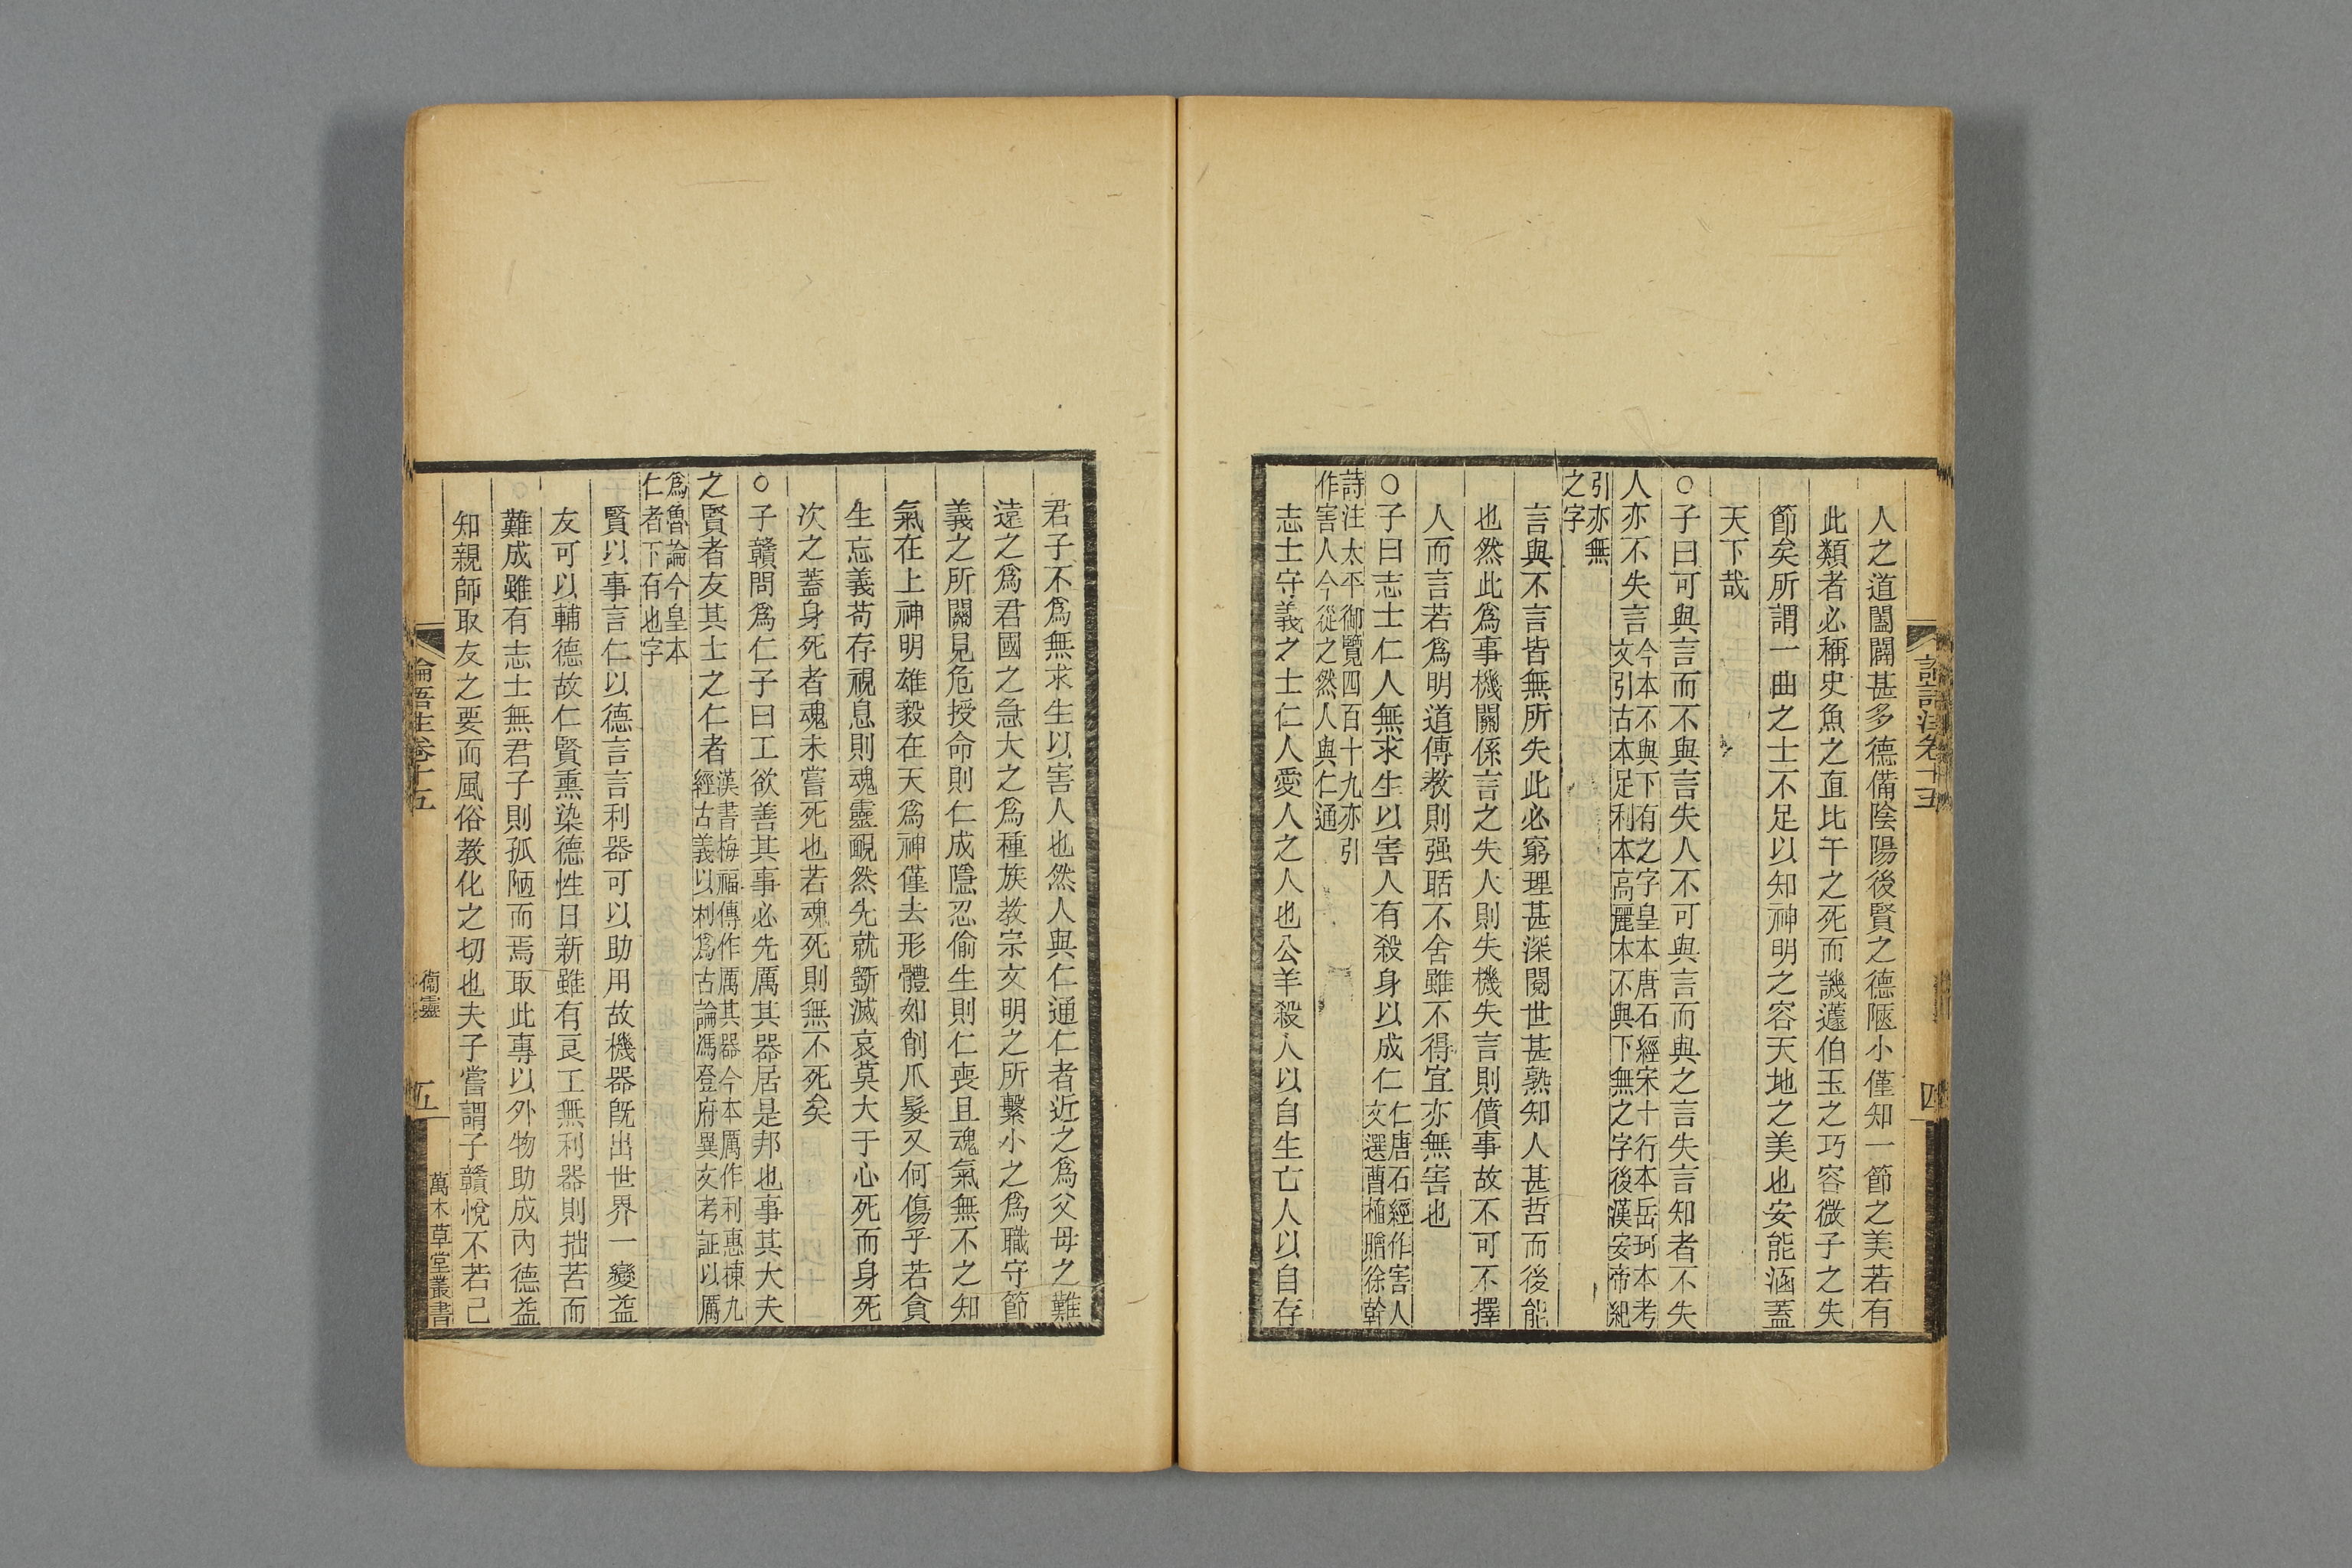 論語注卷十五
四
人之道闔闢甚多德備陰陽後賢之德陋小僅知一節之美若有
此類者必稱史魚之直比干之死而譏蘧伯玉之巧容微子之失
節矣所謂一曲之士不足以知神明之容天地之美也安能涵蓋
天下哉
○子曰可與言而不與言失人不可與言而與之言失言知者不失
人亦不失言
今本不與下有之字皇本唐石經宋十行本岳珂本考
文引古本足利本高麗本不與下無之字後漢安帝紀
引亦無
之字
言與不言皆無所失此必窮理甚深閱世甚熟知人甚哲而後能
也然此爲事機關係言之失人則失機失言則僨事故不可不擇
人而言若爲明道傳教則强聒不舍雖不得宜亦無害也
○子曰志士仁人無求生以害人有殺身以成仁
仁唐石經作害人
文選曹植贈徐幹
詩注太平御覽四百十九亦引
作害人今從之然人與仁通
志士守義之士仁人愛人之人也公羊殺人以自生亡人以自存
君子不爲無求生以害人也然人與仁通仁者近之爲父母之難
遠之爲君國之急大之爲種族教宗文明之所繫小之爲職守節
義之所關見危授命則仁成隱忍偷生則仁喪且魂氣無不之知
氣在上神明雄毅在天爲神僅去形體如削爪髮又何傷乎若貪
生忘義苟存視息則魂靈靦然先就斵滅哀莫大于心死而身死
次之蓋身死者魂未嘗死也若魂死則無不死矣
○子贛問爲仁子曰工欲善其事必先厲其器居是邦也事其大夫
之賢者友其士之仁者
漢書梅福傳作厲其器今本厲作利惠棟九
經古義以利爲古論馮登府異文考証以厲
爲魯論今皇本
仁者下有也字
賢以事言仁以德言言利器可以助用故機器既出世界一變益
友可以輔德故仁賢熏染德性日新雖有良工無利器則拙苦而
難成雖有志士無君子則孤陋而焉取此專以外物助成內德益
知親師取友之要而風俗教化之切也夫子嘗謂子贛悅不若己
論語注卷十五
衞靈
五
萬木草堂叢書